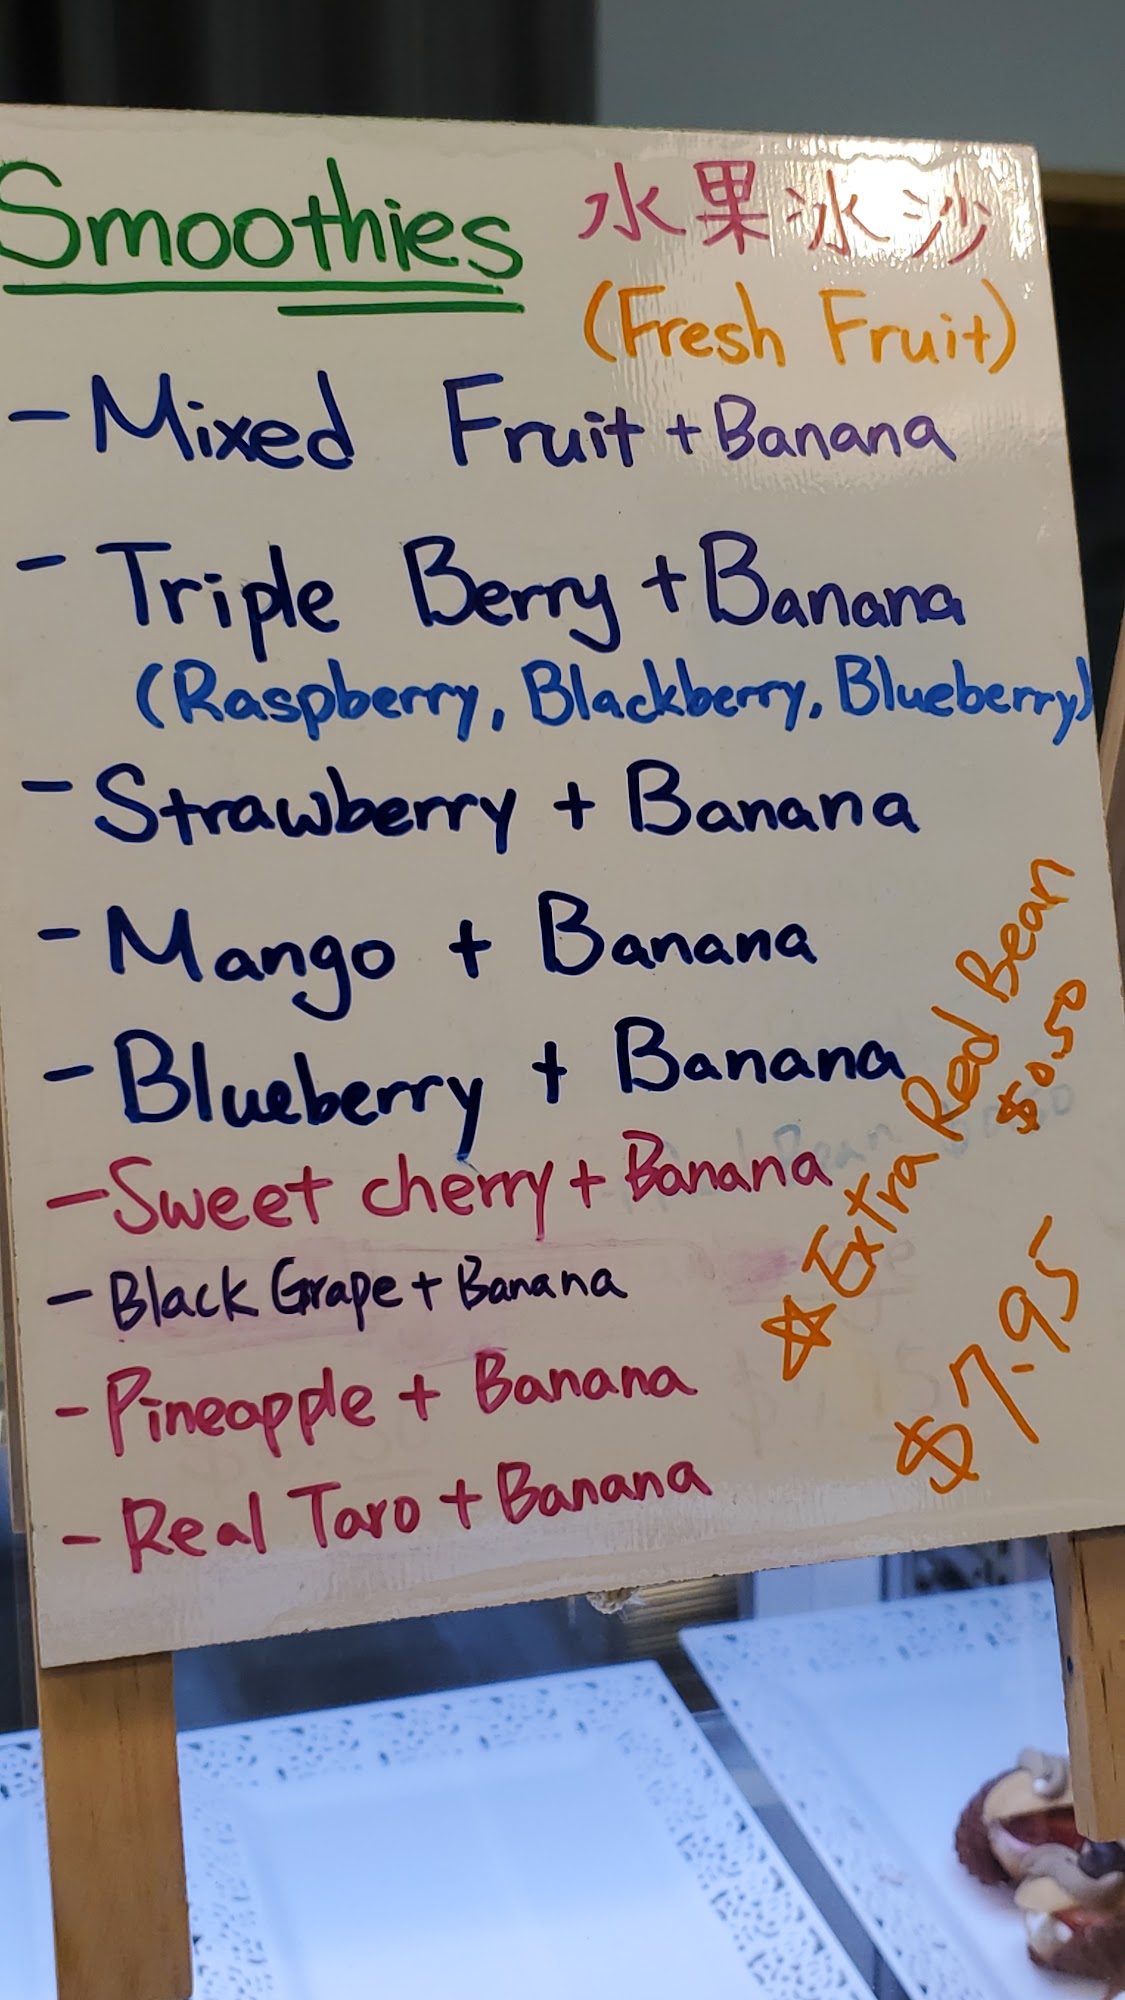 Smoothies 水果冰沙
(Fresh Fruit)
- Mixed Fruit + Banana
- Triple Berry + Banana
(Raspberry, Blackberry, Blueberry)
- Strawberry + Banana
- Mango + Banana
- Blueberry + Banana
- Sweet cherry + Banana
- Black Grape + Banana
- Pineapple + Banana
- Real Taro + Banana
☆ Extra Red Bean
$0.50
$7.95